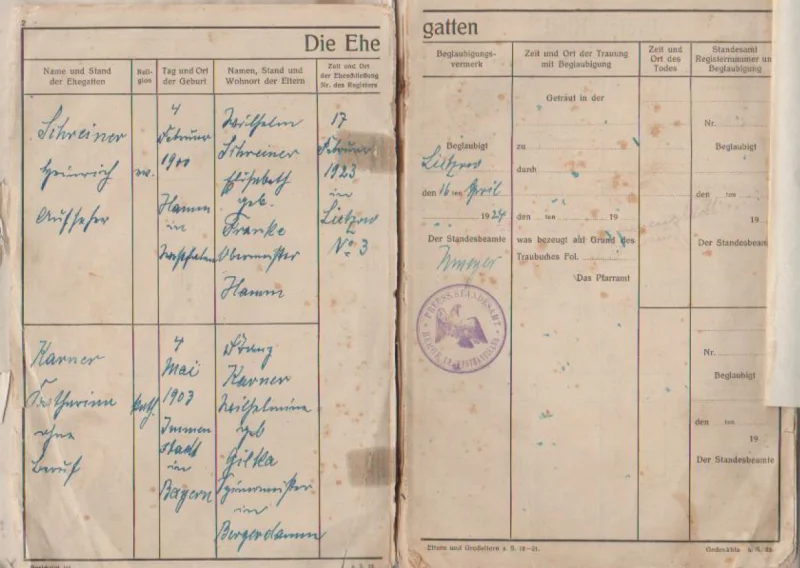 2
Die Ehe
Name und Stand
der Ehegatten
Reli-
gion
Tag und Ort
der Geburt
Namen, Stand und
Wohnort der Eltern
Zeit und Ort
der Eheschließung
Nr. des Registers
Schreiner
Heinrich
Aufseher
ev.
4
Februar
1900
Hamm
in
Westfalen
Wilhelm
Schreiner
Elisabeth
geb.
Franke
Obermeister
Hamm
17
Februar
1923
in
Lietzow
No 3
Karner
Katharina
ohne
Beruf
kath.
4
Mai
1903
Immen
stadt
in
Bayern
Franz
Karner
Wilhelmine
geb
Spinnmeister
in
Bergerdamm
gatten
Beglaubigungs-
vermerk
Zeit und Ort der Trauung
mit Beglaubigung
Zeit und
Ort des
Todes
Standesamt
Registernummer un
Beglaubigung
Beglaubigt
Lietzow
den 16 ten April
1924
Der Standesbeamte
PREUSS. STANDESAMT
Getraut in der
zu
durch
den ten 19
was bezeugt auf Grund des
Traubuches Fol.
Das Pfarramt
Nr.
Beglaubigt
den ten
19
Der Standesbeam
Nr.
Beglaubigt
den ten
19
Der Standesbeamte
Eltern und Großeltern s. S. 18—21.